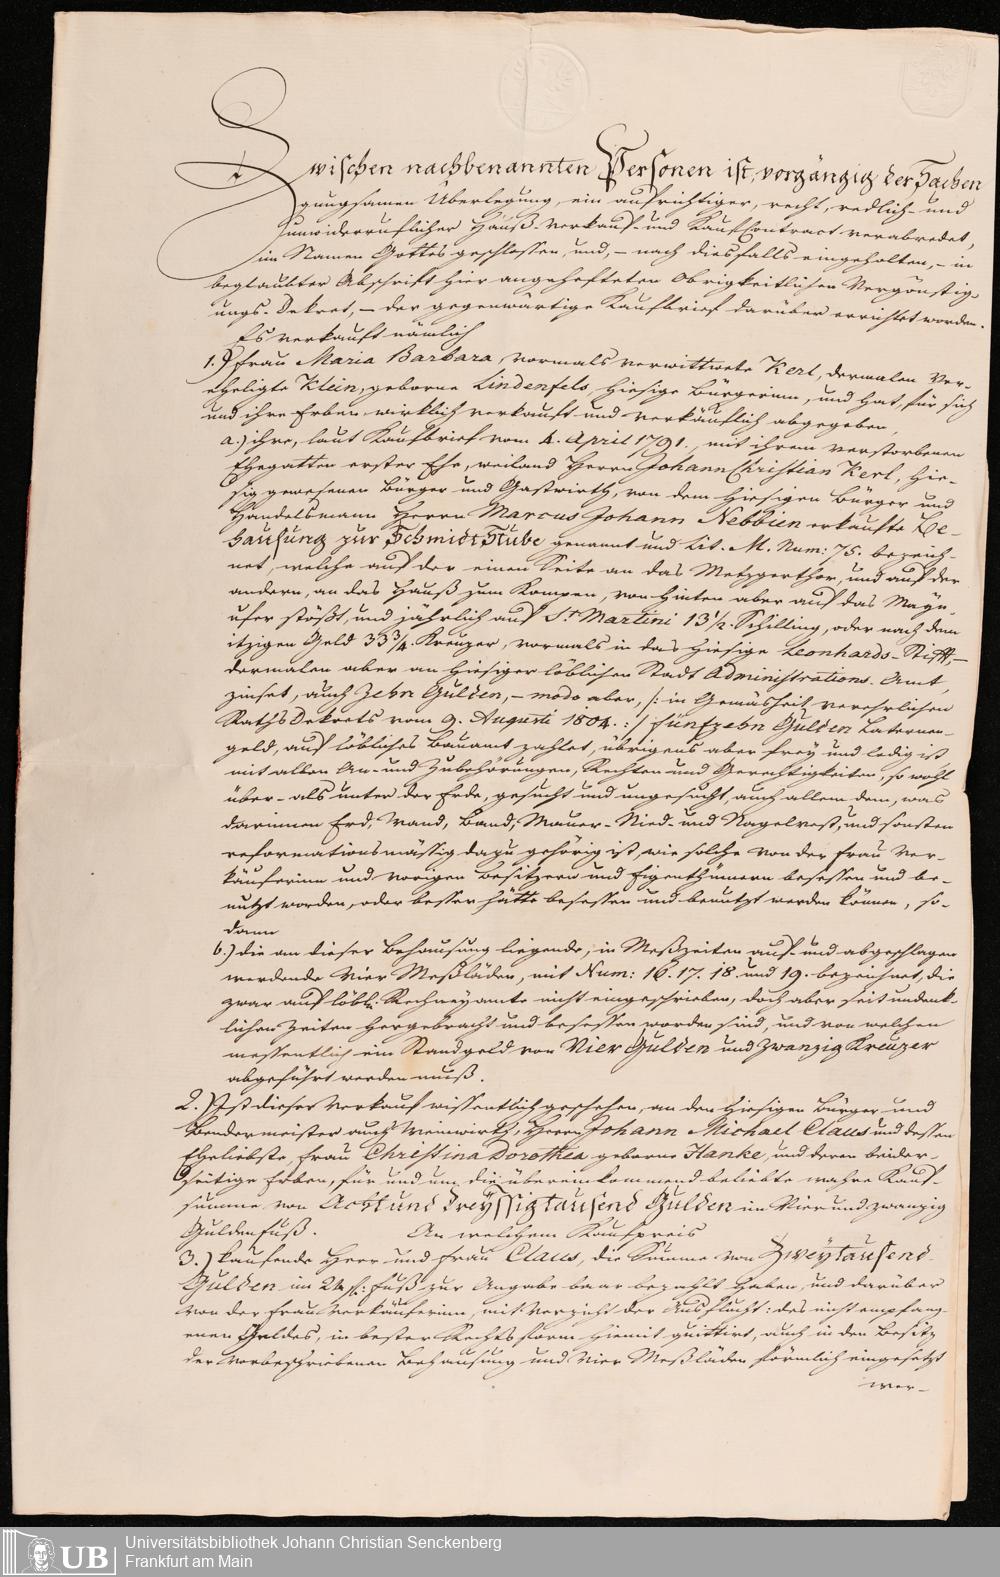 Zwischen nachbenannten Personen ist, vorgängig der Sachen
gnungsamen Überlegung, ein aufrichtiger, recht, redlich- und
unwiderruflicher Hauß-Verkauf- und Kauf Contract verabredet,
im Namen Gottes geschlossen, und, – nach diesfalls eingeholten, – in
beglaubter Abschrift hier angehefteten Obrigkeitlichen Vergönstig-
ungs-Dekret, – der gegenwärtige Kaufbrief darüber errichtet worden.
Es verkauft nämlich
1.) Frau Maria Barbara, vormals verwittwete Kerl, dermalen Ver-
eheligte Klein, geborne Lindenfels hiesige Bürgerinn, und hat, für sich
und ihre Erben wirklich verkauft und verkäuflich abgegeben,
a.) ihre, laut Kaufbrief vom 4. April 1791., mit ihrem verstorbenen
Ehegatten erster Ehe, weiland Herrn Johann Christian Kerl, hie-
sig gewesenen Bürger und Gastwirth, von dem hiesigen Bürger und
Handelsmann Herrn Marcus Johann Nebbien erkaufte Be-
hausung zur Schmidt Stube genannt und Lit. M. Num: 75. bezeich-
net, welche auf der einen Seite an das Metzgerthor, und auf der
andern, an das Hauß zum Kompen, von hinten aber auf das Mayn-
ufer stößt, und jährlich auf St. Martini 13 1/2. Schilling, oder nach dem
itzigen Geld 33 3/4. Kreuzer, vormals in das hiesige Leonhards-Stifft, –
dermalen aber an hiesiger löblichen Stadt Administrations-Amt,
zinset, auch Zehn Gulden, – modo aber, /: in Gemäsheit verehrlichen
Raths Dekrets vom 9. Augusti 1804. :/ fünfzehn Gulden Laternen-
geld, auf löbliches Bauamt zahlet, übrigens aber frey und ledig ist,
mit allen An- und Zubehörungen, Rechten und Gerechtigkeiten, so wohl
über- als unter der Erde, gesucht und ungesucht, auch allem dem, was
darinnen Erd, Wand, Band, Mauer- Nied- und Nagelvest, und sonsten
reformationsmässig dazu gehörig ist, wie solche von der Frau Ver-
käuferinn und vorigen Besitzern und Eigenthümern besessen und be-
nutzt worden, oder besser hätte besessen und benutzt werden können, so-
dann
b.) die an dieser Behausung liegende, in Meßzeiten auf- und abgeschlagen
werdende Vier Meßläden, mit Num: 16. 17. 18. und 19. bezeichnet, die
zwar auf löbl: Rechneyamte nicht eingeschrieben, doch aber seit undenk-
lichen Zeiten hergebracht und besessen worden sind, und von welchen
messentlich ein Standgeld von Vier Gulden und Zwanzig Kreuzer
abgeführt werden muß.
2.) Ist dieser Verkauf wissentlich geschehen, an den hiesigen Bürger und
Bendermeister auch Weinwirth, Herrn Johann Michael Claus und dessen
Eheliebste, Frau Christina Dorothea geborne Hanke, und deren beider-
seitige Erben, für und um die übereinkommend beliebte wahre Kauf-
summe von Acht und Dreyssigtausend Gulden im Vier und zwanzig
Guldenfuß. An welchem Kaufpreis
3.) kaufende Herr und Frau Claus, die Summe von Zweytausend
Gulden im 24 fl: Fuß zur Angabe baar bezahlt haben, und darüber
von der Frau Verkäuferinn, mit Verzicht der Ausflucht: des nicht empfang-
enen Geldes, in bester Rechtsform hiemit quittirt, auch in den Besitz
der vorbeschriebenen Behausung und Vier Meßläden förmlich eingesetzt
wer-
UB
Universitätsbibliothek Johann Christian Senckenberg
Frankfurt am Main